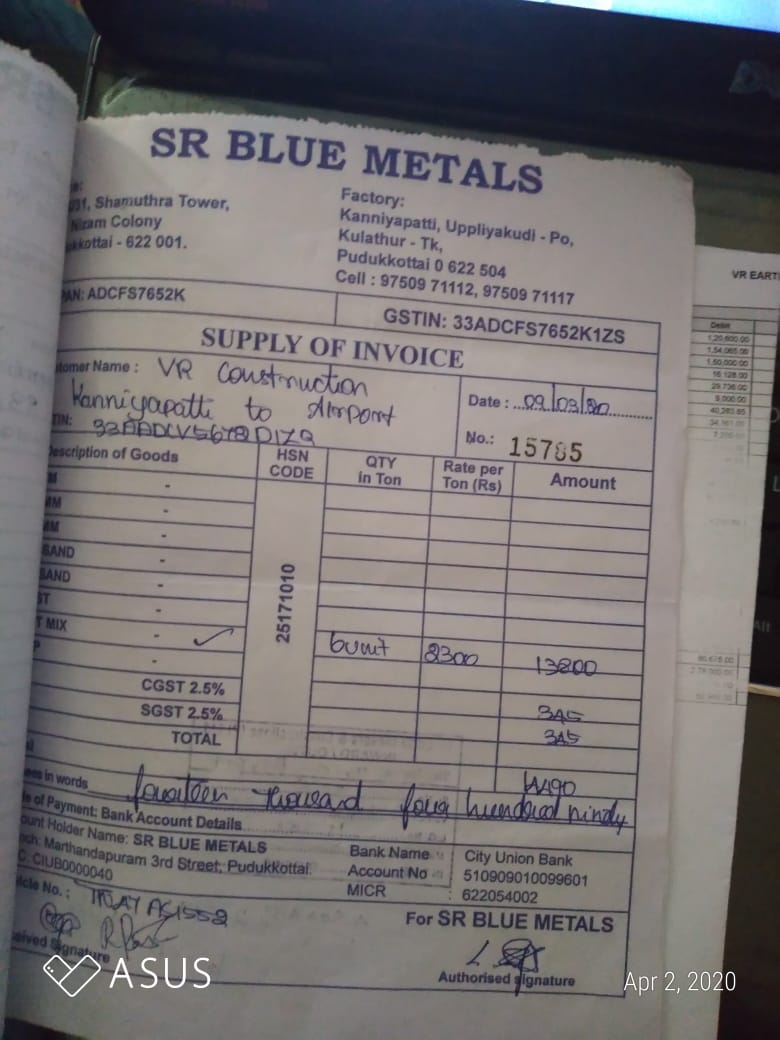 SR BLUE METALS
Shamuthra Tower,
Nizam Colony
kkottai - 622 001.
Factory:
Kanniyapatti, Uppliyakudi - Po,
Kulathur - Tk,
Pudukkottai 0 622 504
Cell : 97509 71112, 97509 71117
PAN: ADCFS7652K
GSTIN: 33ADCFS7652K1ZS
SUPPLY OF INVOICE
tomer Name : VR Construction
Kanniyapatti to Airport
Date : 09/03/20
No.: 15785
escription of Goods
HSN CODE
QTY in Ton
Rate per Ton (Rs)
Amount
M -
MM -
MM -
SAND -
SAND -
ST -
T MIX -
25171010
6 unit 2300 13800
CGST 2.5% 345
SGST 2.5% 345
TOTAL
14490
ees in words fourteen thousand four hundred ninety
e of Payment: Bank Account Details
ount Holder Name: SR BLUE METALS
nch: Marthandapuram 3rd Street, Pudukkottai.
C: CIUB0000040
Bank Name : City Union Bank
Account No : 510909010099601
MICR : 622054002
icle No. :
For SR BLUE METALS
eived Signature
Authorised signature
ASUS
Apr 2, 2020
VR EART
Debit
1,20,600.00
1,54,065.00
1,50,000.00